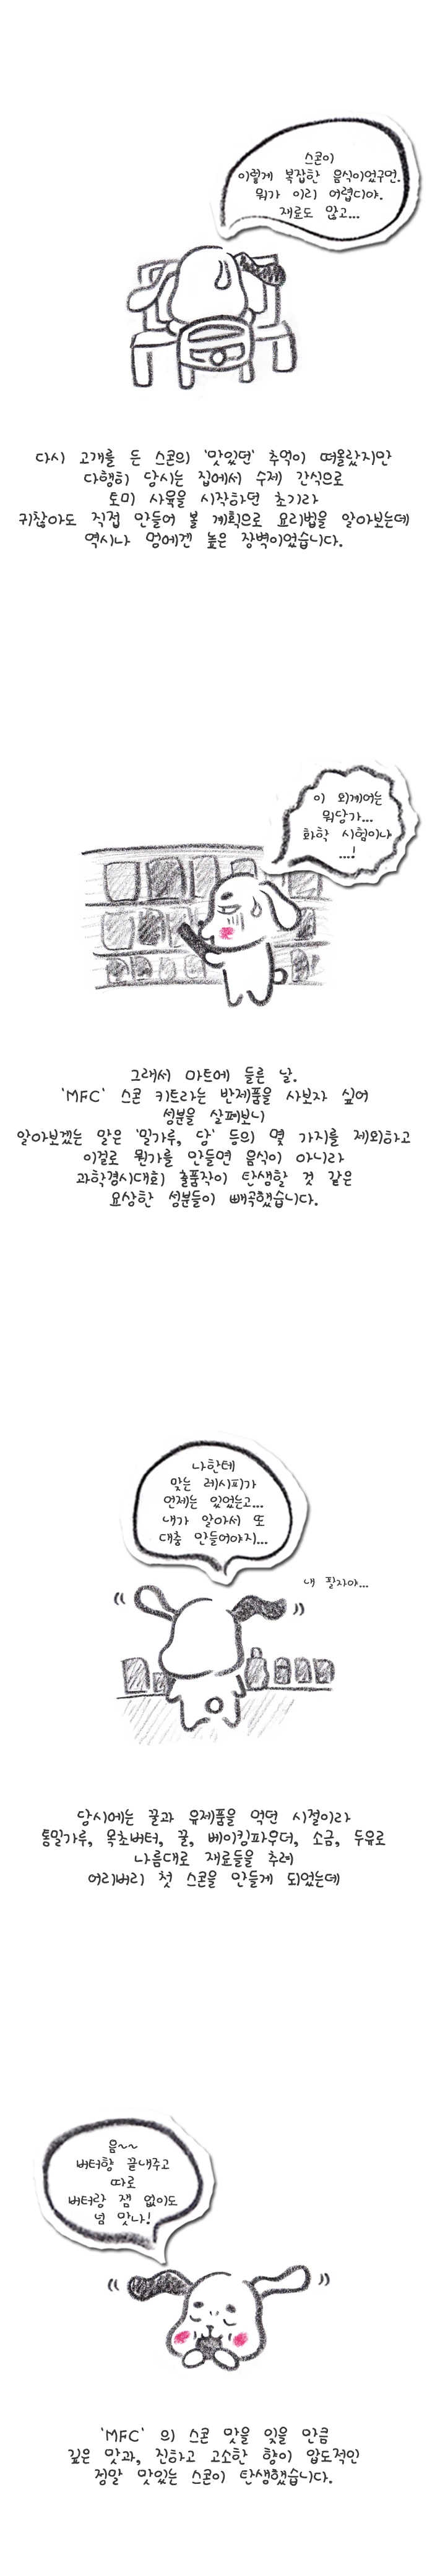 스콘이
이렇게 복잡한 음식이었구먼.
뭐가 이리 어렵디야.
재료도 많고...
다시 고개를 든 스콘의 '맛있던' 추억이 떠올랐지만
다행히 당시는 집에서 수제 간식으로
토미 사육을 시작하던 초기라
귀찮아도 직접 만들어 볼 계획으로 요리법을 알아보는데
역시나 멍에겐 높은 장벽이었습니다.
이 외계어는
뭐당가...
화학 시험이냐
...!
그래서 마트에 들른 날.
'MFC' 스콘 키트라는 반제품을 사보자 싶어
성분을 살펴보니
알아보겠는 말은 '밀가루, 당' 등의 몇 가지를 제외하고
이걸로 뭔가를 만들면 음식이 아니라
과학경시대회 출품작이 탄생할 것 같은
요상한 성분들이 빼곡했습니다.
나한테
맞는 레시피가
언제는 있었는고...
내가 알아서 또
대충 만들어야지...
내 팔자야...
당시에는 꿀과 유제품을 먹던 시절이라
통밀가루, 목초버터, 꿀, 베이킹파우더, 소금, 두유로
나름대로 재료들을 추려
어리버리 첫 스콘을 만들게 되었는데
음~~
버터향 끝내주고
따로
버터랑 잼 없이도
넘 맛나!
'MFC' 의 스콘 맛을 잊을 만큼
깊은 맛과, 진하고 고소한 향이 압도적인
정말 맛있는 스콘이 탄생했습니다.